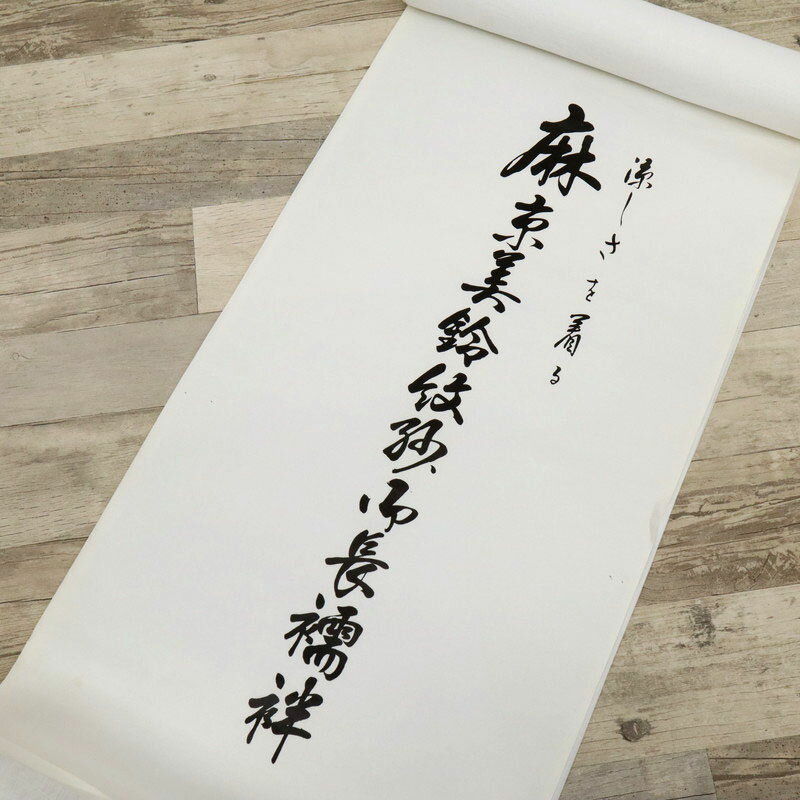 涼しさを着る
麻京美鈴紋紗御長襦袢